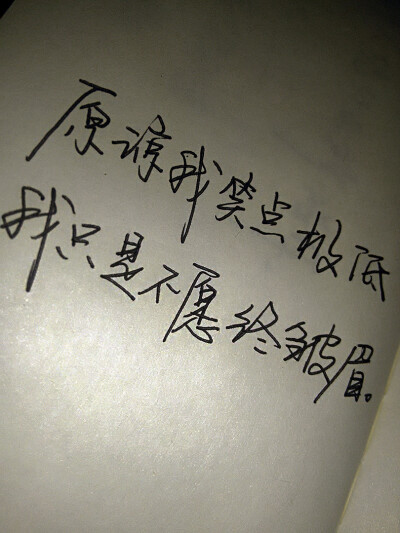 原谅我笑点极底
我只是不愿终皱眉。